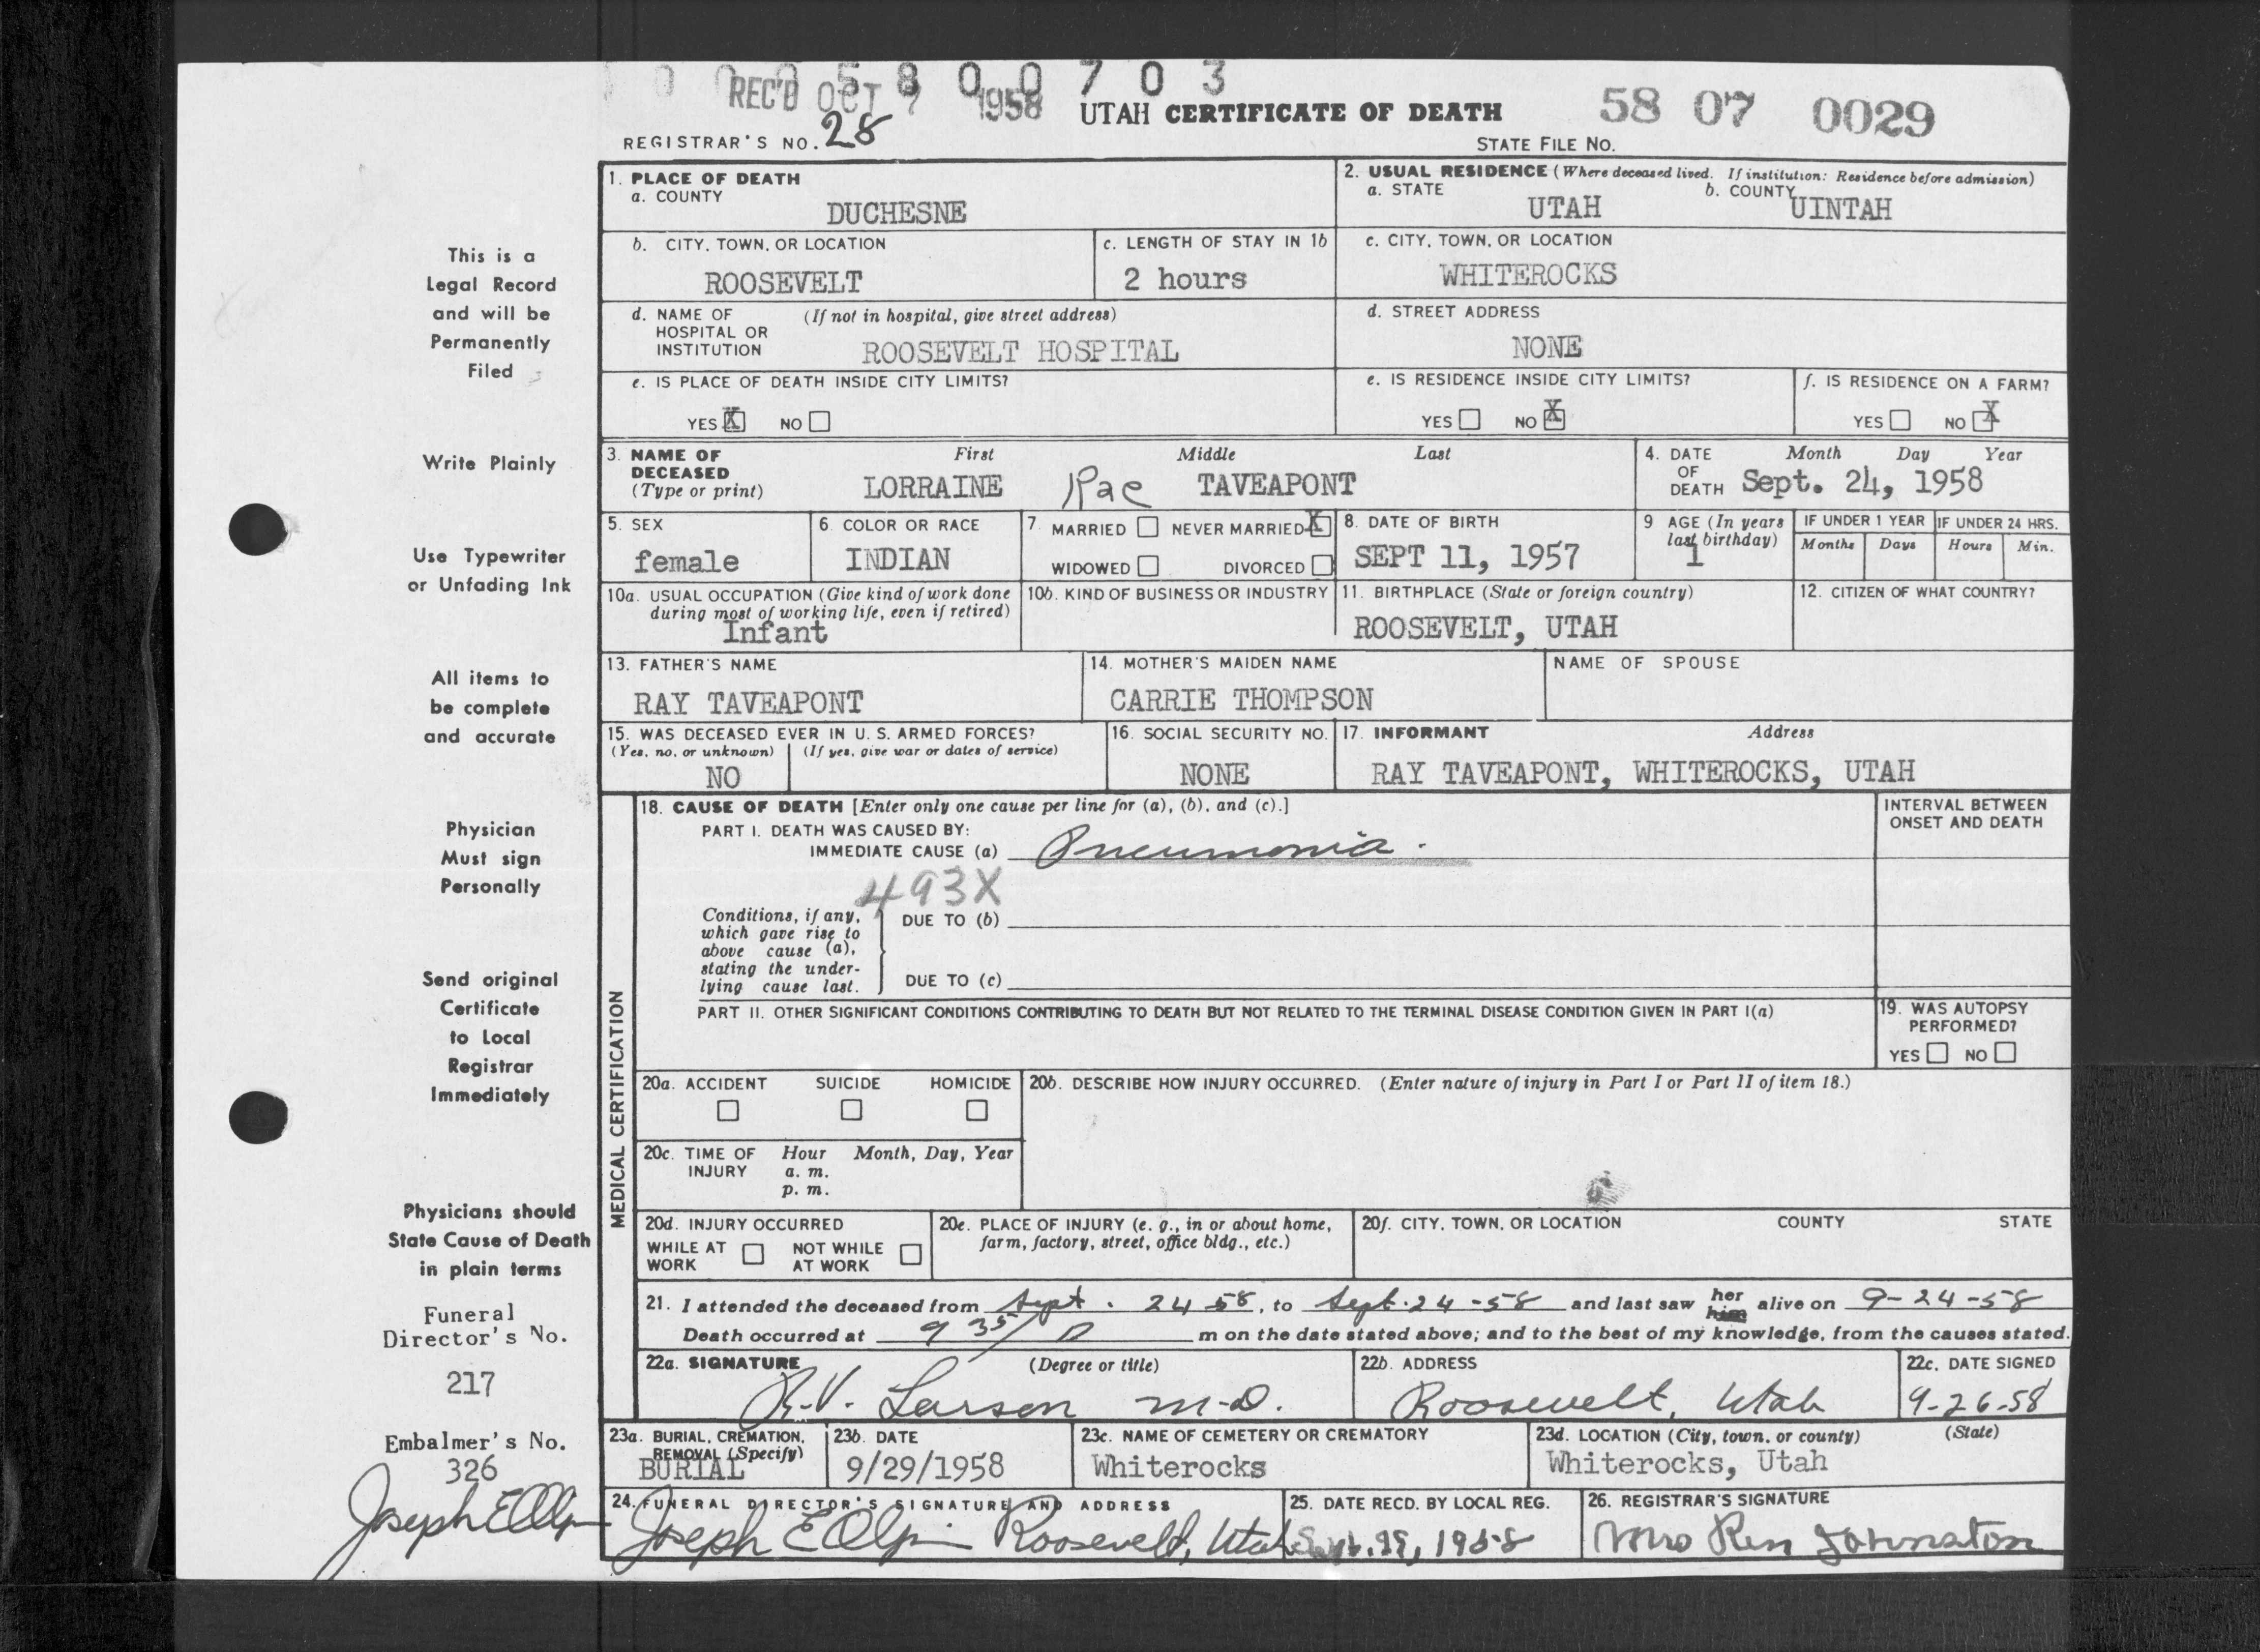 0 0 0 5 8 0 0 7 0 3
REC'D OCT 7 1958 UTAH CERTIFICATE OF DEATH 58 07 0029
REGISTRAR'S NO. 28 STATE FILE NO.
1. PLACE OF DEATH
a. COUNTY
DUCHESNE
2. USUAL RESIDENCE (Where deceased lived. If institution: Residence before admission)
a. STATE b. COUNTY
UTAH UINTAH
b. CITY, TOWN, OR LOCATION
ROOSEVELT
c. LENGTH OF STAY IN 1b
2 hours
c. CITY, TOWN, OR LOCATION
WHITEROCKS
d. NAME OF (If not in hospital, give street address)
HOSPITAL OR
INSTITUTION ROOSEVELT HOSPITAL
d. STREET ADDRESS
NONE
e. IS PLACE OF DEATH INSIDE CITY LIMITS?
YES X NO
e. IS RESIDENCE INSIDE CITY LIMITS?
YES NO X
f. IS RESIDENCE ON A FARM?
YES NO X
3. NAME OF First Middle Last
DECEASED
(Type or print) LORRAINE Rae TAVEAPONT
4. DATE Month Day Year
OF
DEATH Sept. 24, 1958
5. SEX
female
6. COLOR OR RACE
INDIAN
7. MARRIED NEVER MARRIED X
WIDOWED DIVORCED
8. DATE OF BIRTH
SEPT 11, 1957
9 AGE (In years
last birthday)
1
IF UNDER 1 YEAR
Months Days
IF UNDER 24 HRS.
Hours Min.
10a. USUAL OCCUPATION (Give kind of work done
during most of working life, even if retired)
Infant
10b. KIND OF BUSINESS OR INDUSTRY
11. BIRTHPLACE (State or foreign country)
ROOSEVELT, UTAH
12. CITIZEN OF WHAT COUNTRY?
13. FATHER'S NAME
RAY TAVEAPONT
14. MOTHER'S MAIDEN NAME
CARRIE THOMPSON
NAME OF SPOUSE
15. WAS DECEASED EVER IN U. S. ARMED FORCES?
(Yes, no, or unknown) (If yes, give war or dates of service)
NO
16. SOCIAL SECURITY NO.
NONE
17. INFORMANT Address
RAY TAVEAPONT, WHITEROCKS, UTAH
MEDICAL CERTIFICATION
18. CAUSE OF DEATH [Enter only one cause per line for (a), (b), and (c).]
PART I. DEATH WAS CAUSED BY:
IMMEDIATE CAUSE (a) Pneumonia.
INTERVAL BETWEEN
ONSET AND DEATH
493X
Conditions, if any,
which gave rise to
above cause (a),
stating the under-
lying cause last.
DUE TO (b)
DUE TO (c)
PART II. OTHER SIGNIFICANT CONDITIONS CONTRIBUTING TO DEATH BUT NOT RELATED TO THE TERMINAL DISEASE CONDITION GIVEN IN PART I(a)
19. WAS AUTOPSY
PERFORMED?
YES NO
20a. ACCIDENT SUICIDE HOMICIDE
20b. DESCRIBE HOW INJURY OCCURRED. (Enter nature of injury in Part I or Part II of item 18.)
20c. TIME OF Hour Month, Day, Year
INJURY a. m.
p. m.
20d. INJURY OCCURRED
WHILE AT NOT WHILE
WORK AT WORK
20e. PLACE OF INJURY (e. g., in or about home,
farm, factory, street, office bldg., etc.)
20f. CITY, TOWN, OR LOCATION COUNTY STATE
21. I attended the deceased from Sept. 24 58, to Sept. 24 -58 and last saw her him alive on 9-24-58
Death occurred at 9 35 P m on the date stated above; and to the best of my knowledge, from the causes stated.
22a. SIGNATURE (Degree or title)
R.V. Larson M-D.
22b. ADDRESS
Roosevelt, Utah
22c. DATE SIGNED
9-26-58
23a. BURIAL, CREMATION,
REMOVAL (Specify)
BURIAL
23b. DATE
9/29/1958
23c. NAME OF CEMETERY OR CREMATORY
Whiterocks
23d. LOCATION (City, town, or county) (State)
Whiterocks, Utah
24. FUNERAL DIRECTOR'S SIGNATURE AND ADDRESS
Joseph E Olpin Roosevelt, Utah
25. DATE RECD. BY LOCAL REG.
Sept. 29, 1958
26. REGISTRAR'S SIGNATURE
Mrs Ren Johnston
This is a
Legal Record
and will be
Permanently
Filed
Write Plainly
Use Typewriter
or Unfading Ink
All items to
be complete
and accurate
Physician
Must sign
Personally
Send original
Certificate
to Local
Registrar
Immediately
Physicians should
State Cause of Death
in plain terms
Funeral
Director's No.
217
Embalmer's No.
326
Joseph E Olpin